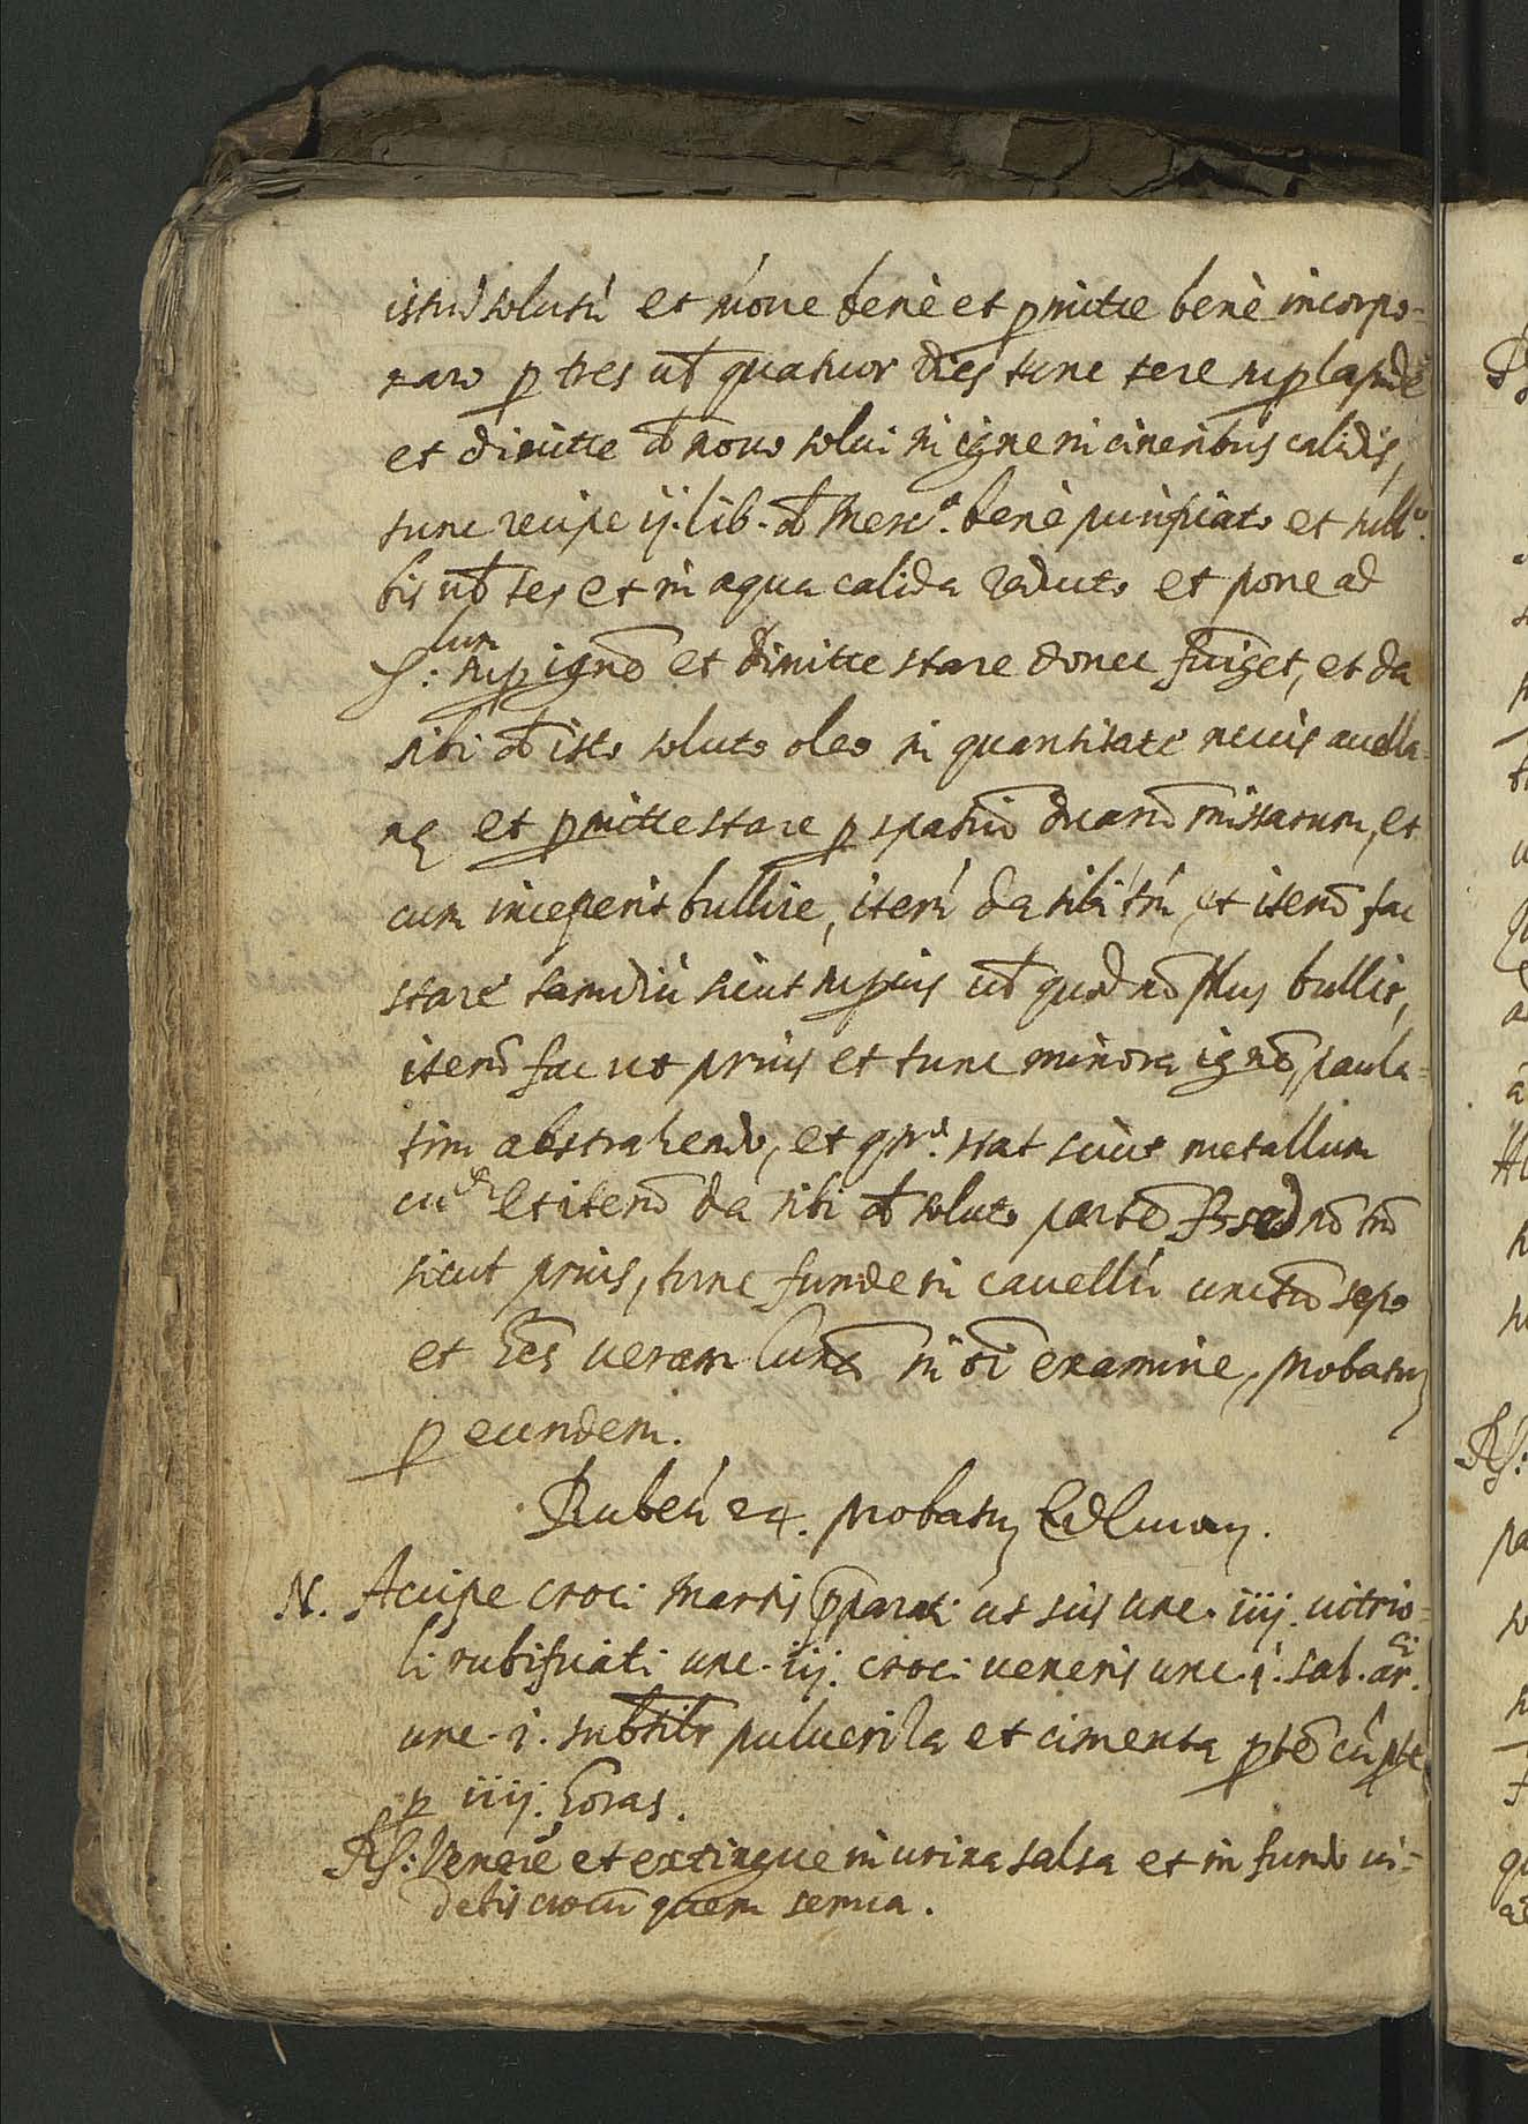 istud solutū et moue benè et pmitte benè incorpo-
rare p tres uł quatuor dies tunc tere sup lapidē
et dimitte đ nouo solui in igne in cineribus calidis,
tunc recipe ij. lib. đ Mercᵒ. benè purificato et subᵒ.
bis uł ter et in aqua calida educto et pone ad
sup ignē et dimitte stare donec fuiget, et da
sibi đ isto soluto oleo in quantitate nucis auella-
nę et pmitte stare p spatiū duarū missarum, et
cum inceperit bullire, iterū da sibi tm̄ et iterū fac
stare tamdiu sicut superius uł quod nō plus bullit,
iterū fac ut prius et tunc minora ignē, paula-
tim abstrahendo, et stat sicut metallum
et iterū da sibi đ soluto partē sed nō tm̄
sicut prius, tunc funde in cauellū unctū sepo
et hēs ueram Lunā in oī examine, probatū
p eundem.
Rubeū 24. probatū
N. Accipe croci Martis pparati ut scis unc. iiij. uitrio-
li rubificati unc. iij. croci ueneris unc. i. sal. arᶜⁱ.
unc. i. subtilr pulueriza et cimenta ptē cū pte
p iiij. horas.
R: Venerē et extingue in urina salsa et in fundo ui-
debis crocū quem serua.